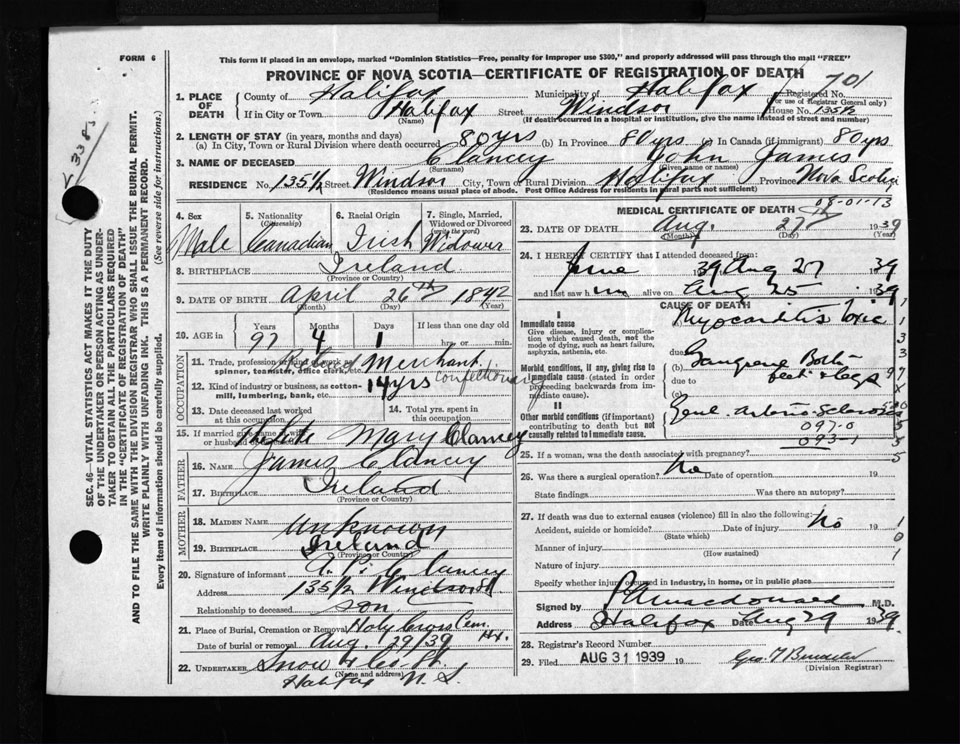 FORM 6
This form if placed in an envelope, marked "Dominion Statistics—Free, penalty for improper use $300," and properly addressed will pass through the mail "FREE"
PROVINCE OF NOVA SCOTIA—CERTIFICATE OF REGISTRATION OF DEATH
701
1. PLACE OF DEATH
County of Halifax Municipality of Halifax Registered No.
(For use of Registrar General only)
If in City or Town Halifax Street Windsor House No. 135½
(Name) (If death occurred in a hospital or institution, give the name instead of street and number)
2. LENGTH OF STAY (in years, months and days)
(a) In City, Town or Rural Division where death occurred 80 yrs (b) In Province 80 yrs (c) In Canada (if immigrant) 80 yrs
3. NAME OF DECEASED Clancy John James
(Surname) (Given name or names)
RESIDENCE No. 135½ Street Windsor City, Town or Rural Division Halifax Province Nova Scotia
(Residence means usual place of abode. Post Office Address for residents in rural parts not sufficient)
4. Sex Male
5. Nationality (Citizenship) Canadian
6. Racial Origin Irish
7. Single, Married, Widowed or Divorced (write the word) Widower
8. BIRTHPLACE Ireland
(Province or Country)
9. DATE OF BIRTH April 26th 1842
(Month) (Day) (Year)
10. AGE in Years Months Days If less than one day old
97 4 1 hrs. or min.
OCCUPATION
11. Trade, profession or kind of work as spinner, teamster, office clerk, etc. Retired Merchant
12. Kind of industry or business, as cotton-mill, lumbering, bank, etc. 14 yrs confectionary
13. Date deceased last worked at this occupation
14. Total yrs. spent in this occupation
15. If married give name of wife or husband Late Mary Clancy
FATHER
16. NAME James Clancy
17. BIRTHPLACE Ireland
(Province or Country)
MOTHER
18. MAIDEN NAME unknown
19. BIRTHPLACE Ireland
(Province or Country)
20. Signature of informant Clancy
Address 135½ Windsor St
Relationship to deceased son
21. Place of Burial, Cremation or Removal Holy Cross Cem. Hx.
Date of burial or removal Aug. 29/39
22. UNDERTAKER Snow & Co.
(Name and address)
Halifax N. S.
MEDICAL CERTIFICATE OF DEATH
08-01-13
23. DATE OF DEATH Aug. 27th 1939
(Month) (Day) (Year)
24. I HEREBY CERTIFY that I attended deceased from:
June 1939 Aug 27 1939
and last saw him alive on Aug 25 1939
CAUSE OF DEATH
I
Immediate cause
Give disease, injury or complication which caused death, not the mode of dying, such as heart failure, asphyxia, asthenia, etc.
(a) Myocarditis Toxic
due to
Morbid conditions, if any, giving rise to immediate cause (stated in order proceeding backwards from immediate cause).
(b) Gangrene Both feet & legs
due to
(c)
II
Other morbid conditions (if important) contributing to death but not causally related to immediate cause.
Arterio-Sclerosis
097-0
093-1
25. If a woman, was the death associated with pregnancy?
26. Was there a surgical operation? No Date of operation 19
State findings Was there an autopsy?
27. If death was due to external causes (violence) fill in also the following:
Accident, suicide or homicide? No Date of injury 19
(State which)
Manner of injury
(How sustained)
Nature of injury
Specify whether injury occurred in industry, in home, or in public place
Signed by Macdonald M.D.
Address Halifax Date Aug 29 1939
28. Registrar's Record Number
29. Filed AUG 31 1939 19
(Division Registrar)
SEC. 46—VITAL STATISTICS ACT MAKES IT THE DUTY OF THE UNDERTAKER OR PERSON ACTING AS UNDERTAKER TO OBTAIN ALL THE PARTICULARS REQUIRED IN THE "CERTIFICATE OF REGISTRATION OF DEATH"
AND TO FILE THE SAME WITH THE DIVISION REGISTRAR WHO SHALL ISSUE THE BURIAL PERMIT.
WRITE PLAINLY WITH UNFADING INK. THIS IS A PERMANENT RECORD.
Every item of information should be carefully supplied. (See reverse side for instructions.)